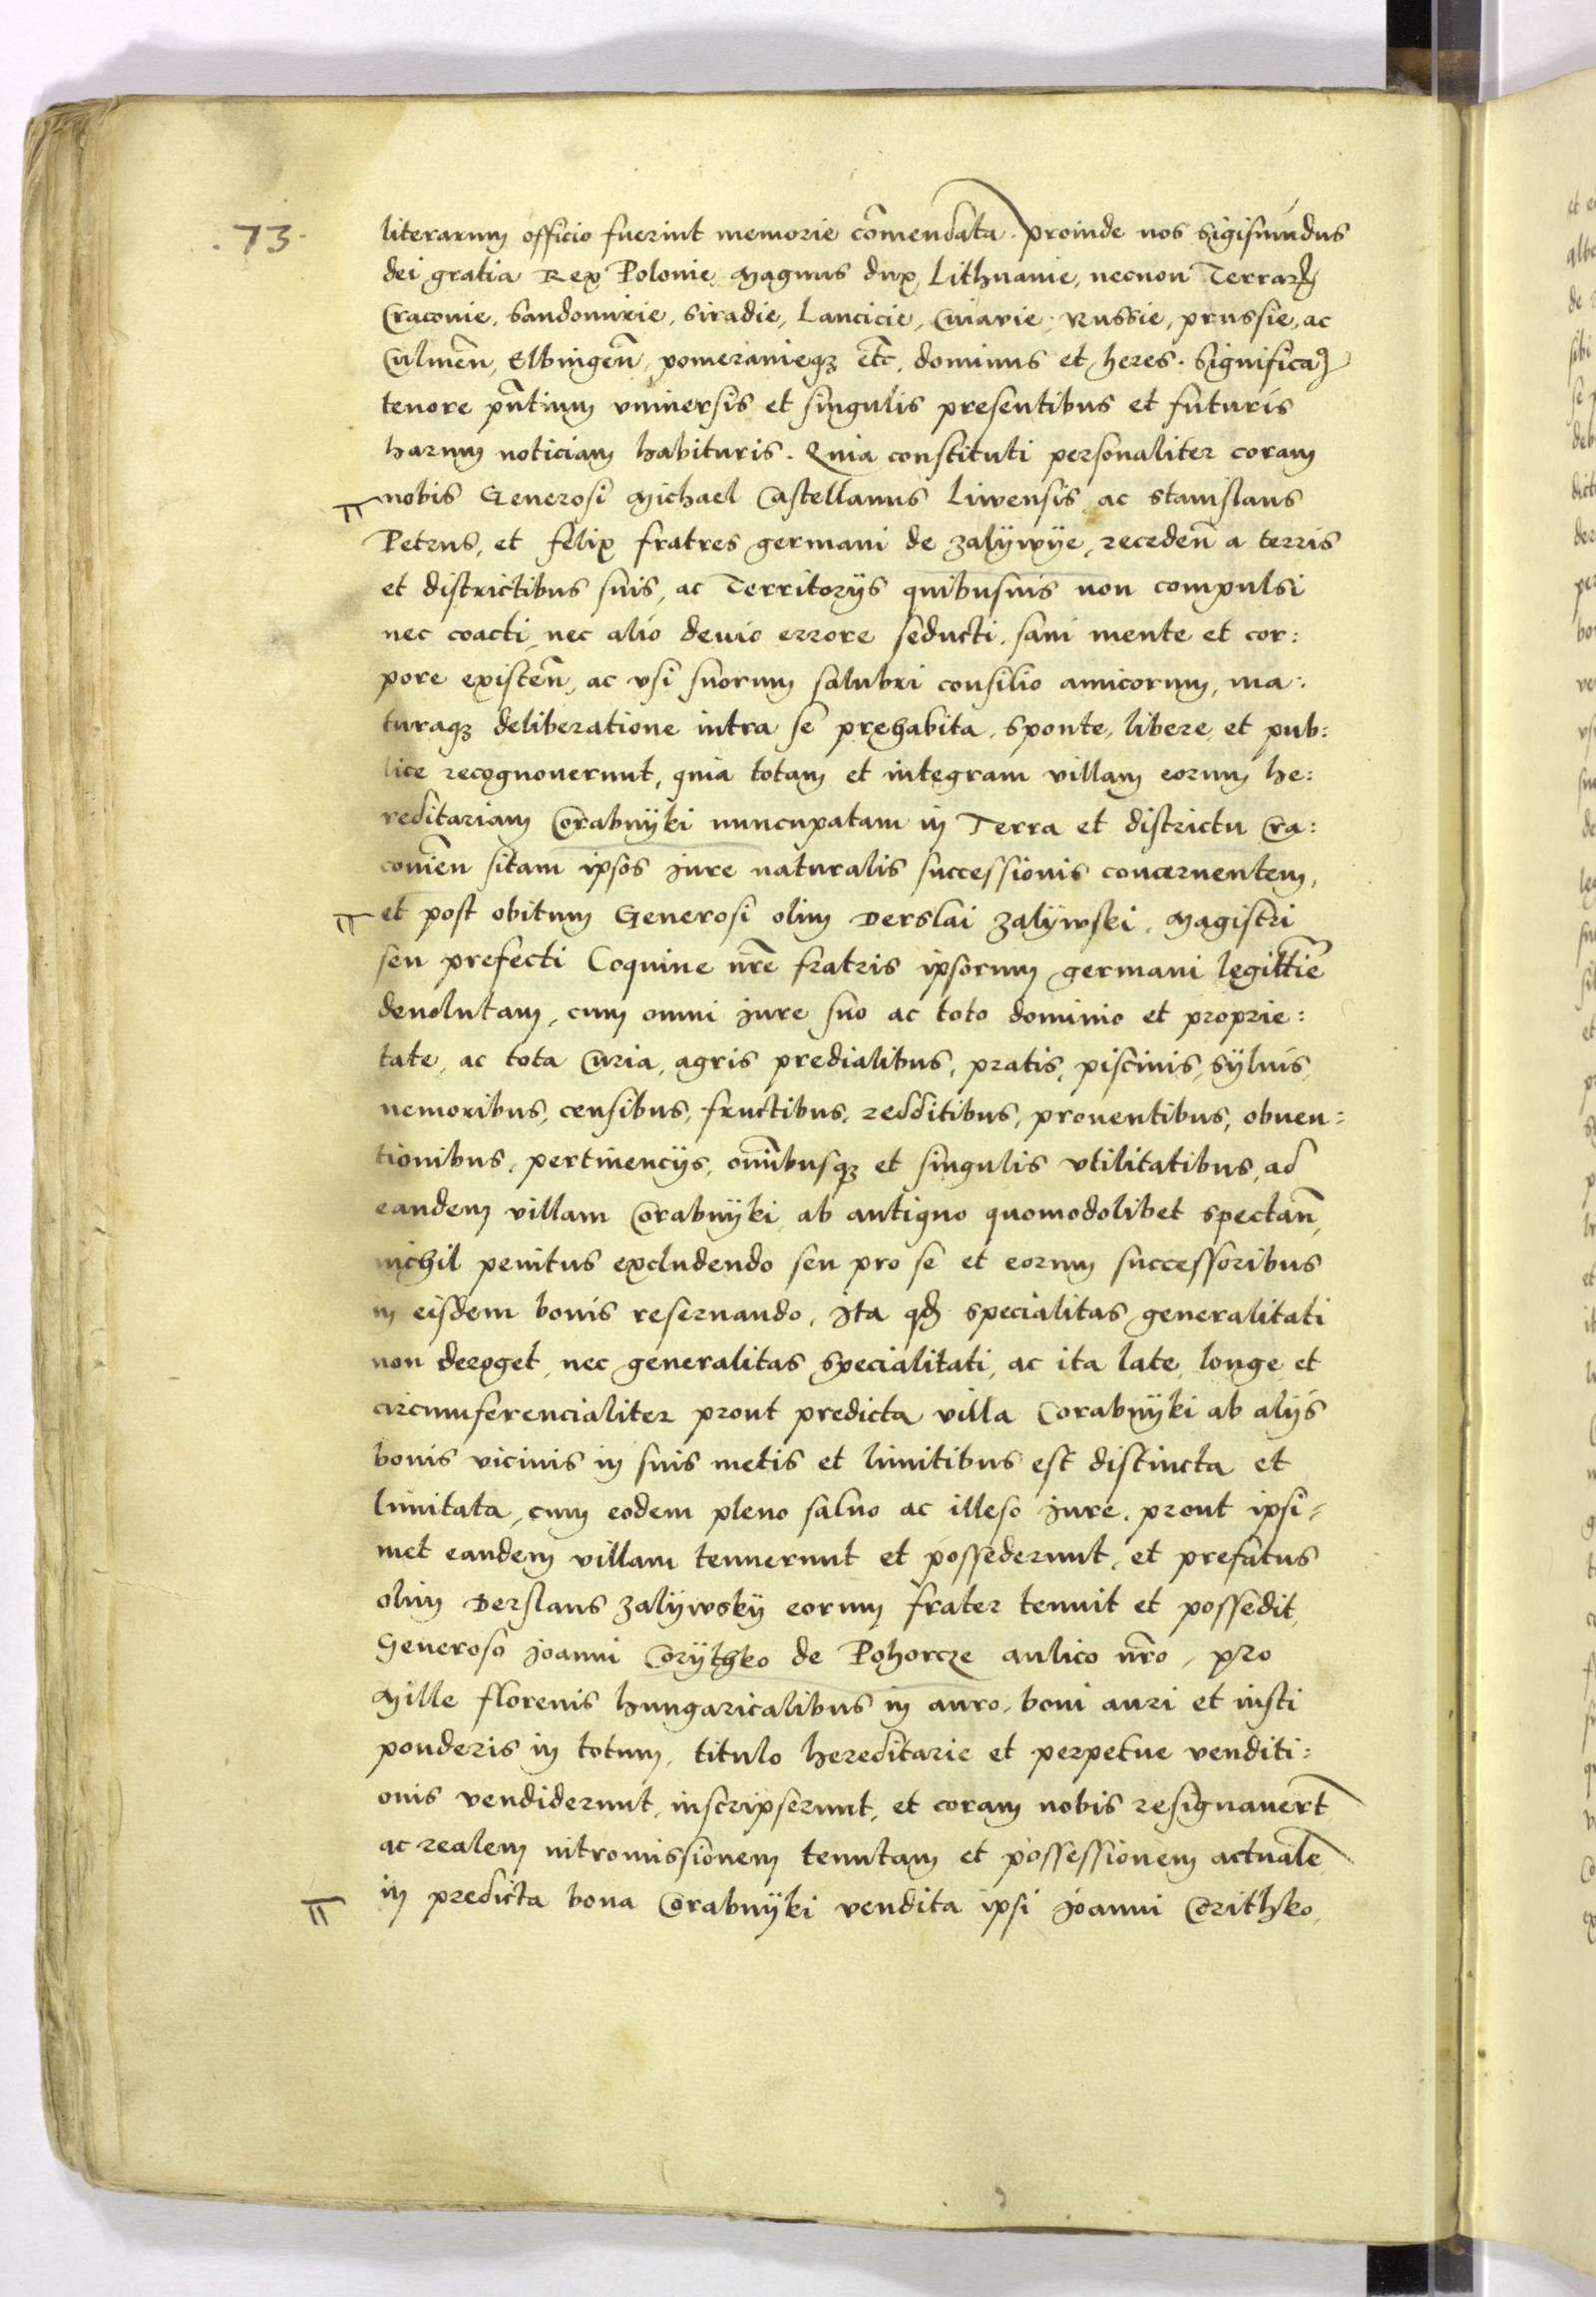 .73.
literarum officio fuerint memorie com̄endata. proinde nos Sigismundus
dei gratia Rex Polonie, Magnus dux Lithuanie, necnon Terrarꝝ
Cracovie, Sandomirie, Siradie, Lancicie, Cuiavie, Russie, prussie, ac
Culmeñ, Elbingeñ, pomeranieqꝫ etc̄. dominus et heres. Significaꝰ
tenore pñtium vniuersis et singulis presentibus et futuris
harum noticiam habituris. Quia constituti personaliter coram
nobis Generosi Michael Castellanus Liwensis, ac Stanislaus
Petrus, et felix fratres germani de Zalÿwÿe, recedeñ a terris
et districtibus suis, ac Territorÿs quibusuis non compulsi
nec coacti, nec alio deuio errore seducti, sani mente et cor:
pore existeñ, ac vsi suorum salubri consilio amicorum, ma:
turaqꝫ deliberatione intra se prehabita, sponte, libere, et pub:
lice recognouerunt, quia totam et integram villam eorum he:
reditariam Corabnÿki nuncupatam in Terra et districtu Cra:
covieñ sitam ipsos Jure naturalis successionis concernentem,
et post obitum Generosi olim Derslai Zalÿwski, Magistri
seu prefecti Coquine nr̄e fratris ipsorum germani legittīe
deuolutam, cum omni Jure suo ac toto dominio et proprie:
tate, ac tota Curia, agris predialibus, pratis, piscinis, sÿluis,
nemoribus, censibus, fructibus, redditibus, prouentibus, obuen:
tionibus, pertinencÿs, om̄ibusqꝫ et singulis vtilitatibus, ad
eandem villam Corabnÿki ab antiquo quomodolibet spectañ,
nichil penitus excludendo seu pro se et eorum successoribus
in eisdem bonis reseruando, Ita qđ specialitas generalitati
non deroget, nec generalitas specialitati, ac ita late, longe et
circumferencialiter prout predicta villa Corabnÿki ab alÿs
bonis vicinis in suis metis et limitibus est distincta et
limitata, cum eodem pleno saluo ac illeso Jure, prout ipsi:
met eandem villam tenuerunt et possederunt, et prefatus
olim Derslaus Zalÿwskÿ eorum frater tenuit et possedit,
Generoso Joanni Corÿthko de Pohorcze aulico nr̄o, pro
Mille florenis hungaricalibus in auro, boni auri et iusti
ponderis in totum, titulo hereditarie et perpetue venditi:
onis vendiderunt, inscripserunt, et coram nobis resignauer̄t
ac realem intromissionem tenutam et possessionem actualē
in predicta bona Corabnÿki vendita ipsi Joanni Corithko,